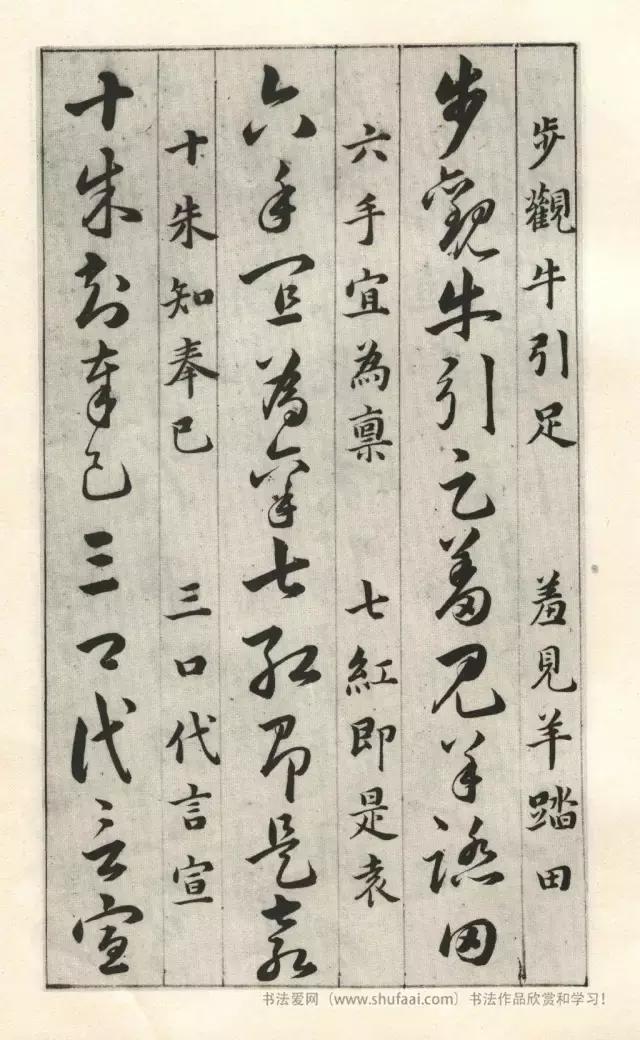 步觀牛引足　羞見羊踏田
步觀牛引足羞見羊踏田
六手宜為禀　七紅即是袁
六手宜為禀七紅即是袁
十朱知奉已　三口代言宣
十朱知奉已三口代言宣
书法爱网（www.shufaai.com）书法作品欣赏和学习！